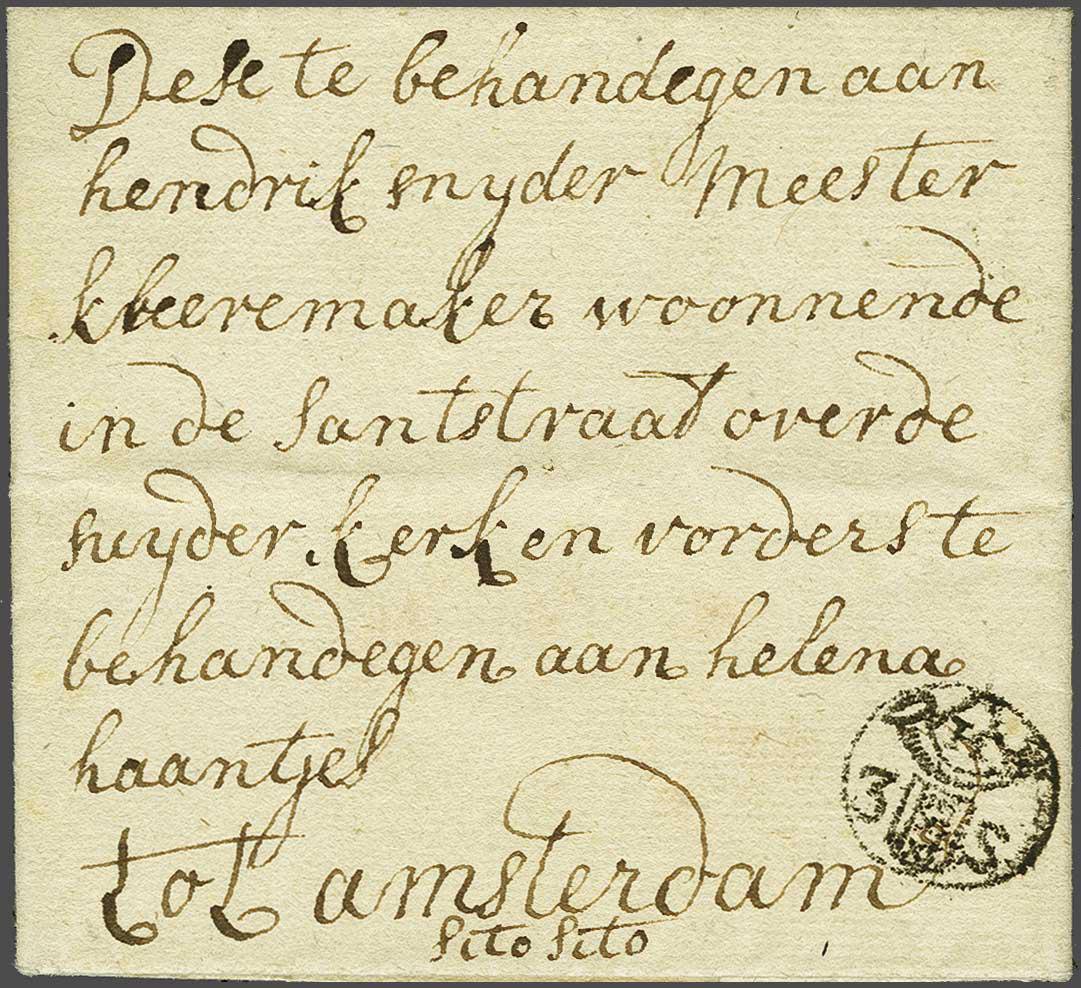 Dese te behandegen aan
hendrik snyder Meester
kleeremaker woonnende
in de santstraat over de
suyder kerk en vorders te
behandegen aan helena
haantjes
tot amsterdam
sito sito
3 S